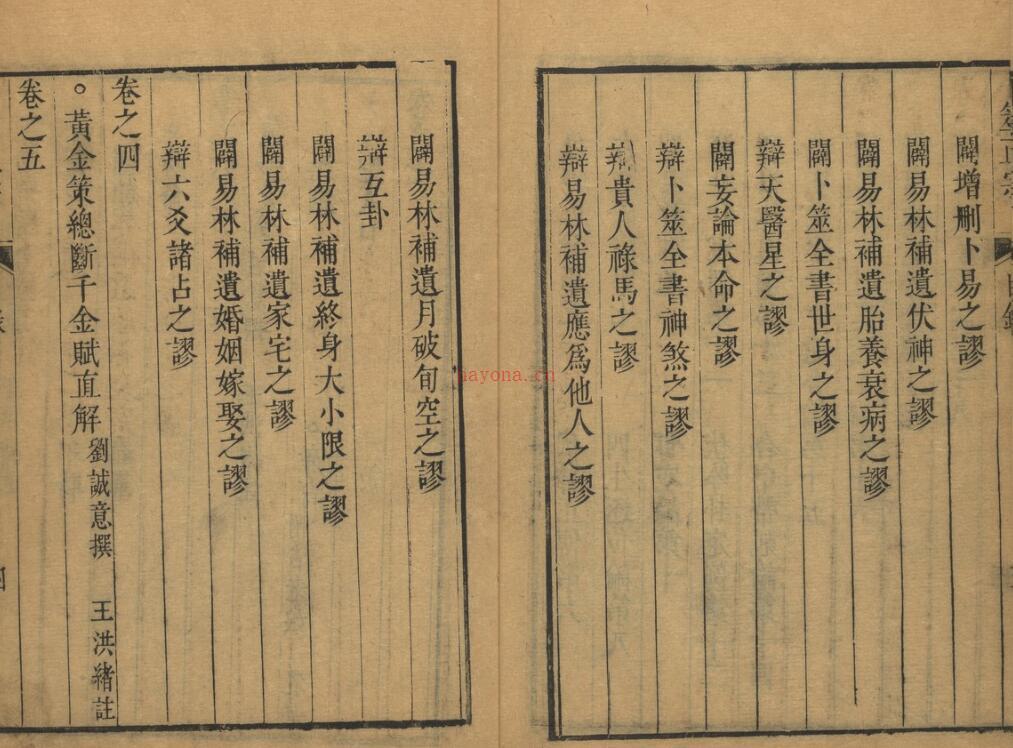 闢增刪卜易之謬
闢易林補遺伏神之謬
闢易林補遺胎養衰病之謬
闢卜筮全書世身之謬
辯天醫星之謬
闢妄論本命之謬
辯卜筮全書神煞之謬
辯貴人祿馬之謬
辯易林補遺應爲他人之謬
闢易林補遺月破旬空之謬
辯互卦
闢易林補遺終身大小限之謬
闢易林補遺家宅之謬
闢易林補遺婚姻嫁娶之謬
辯六爻諸占之謬
卷之四
。黃金策總斷千金賦直解 劉誠意撰 王洪緒註
卷之五
nayona.cn